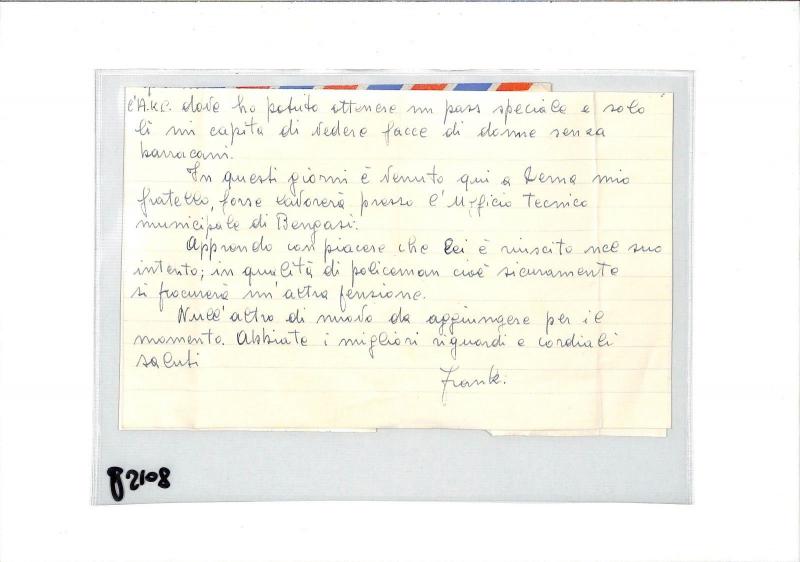 l'A.K.C. dove ho potuto ottenere un pass speciale e solo
lì mi capita di vedere facce di donne senza
barracani.
In questi giorni è venuto qui a Derna mio
fratello, forse lavorerà presso l'Ufficio Tecnico
municipale di Bengasi.
Apprendo con piacere che Lei è riuscito nel suo
intento; in qualità di policeman cioè sicuramente
si procurerà un'altra pensione.
Null'altro di nuovo da aggiungere per il
momento. Abbiate i migliori riguardi e cordiali
saluti
Frank.
P2108